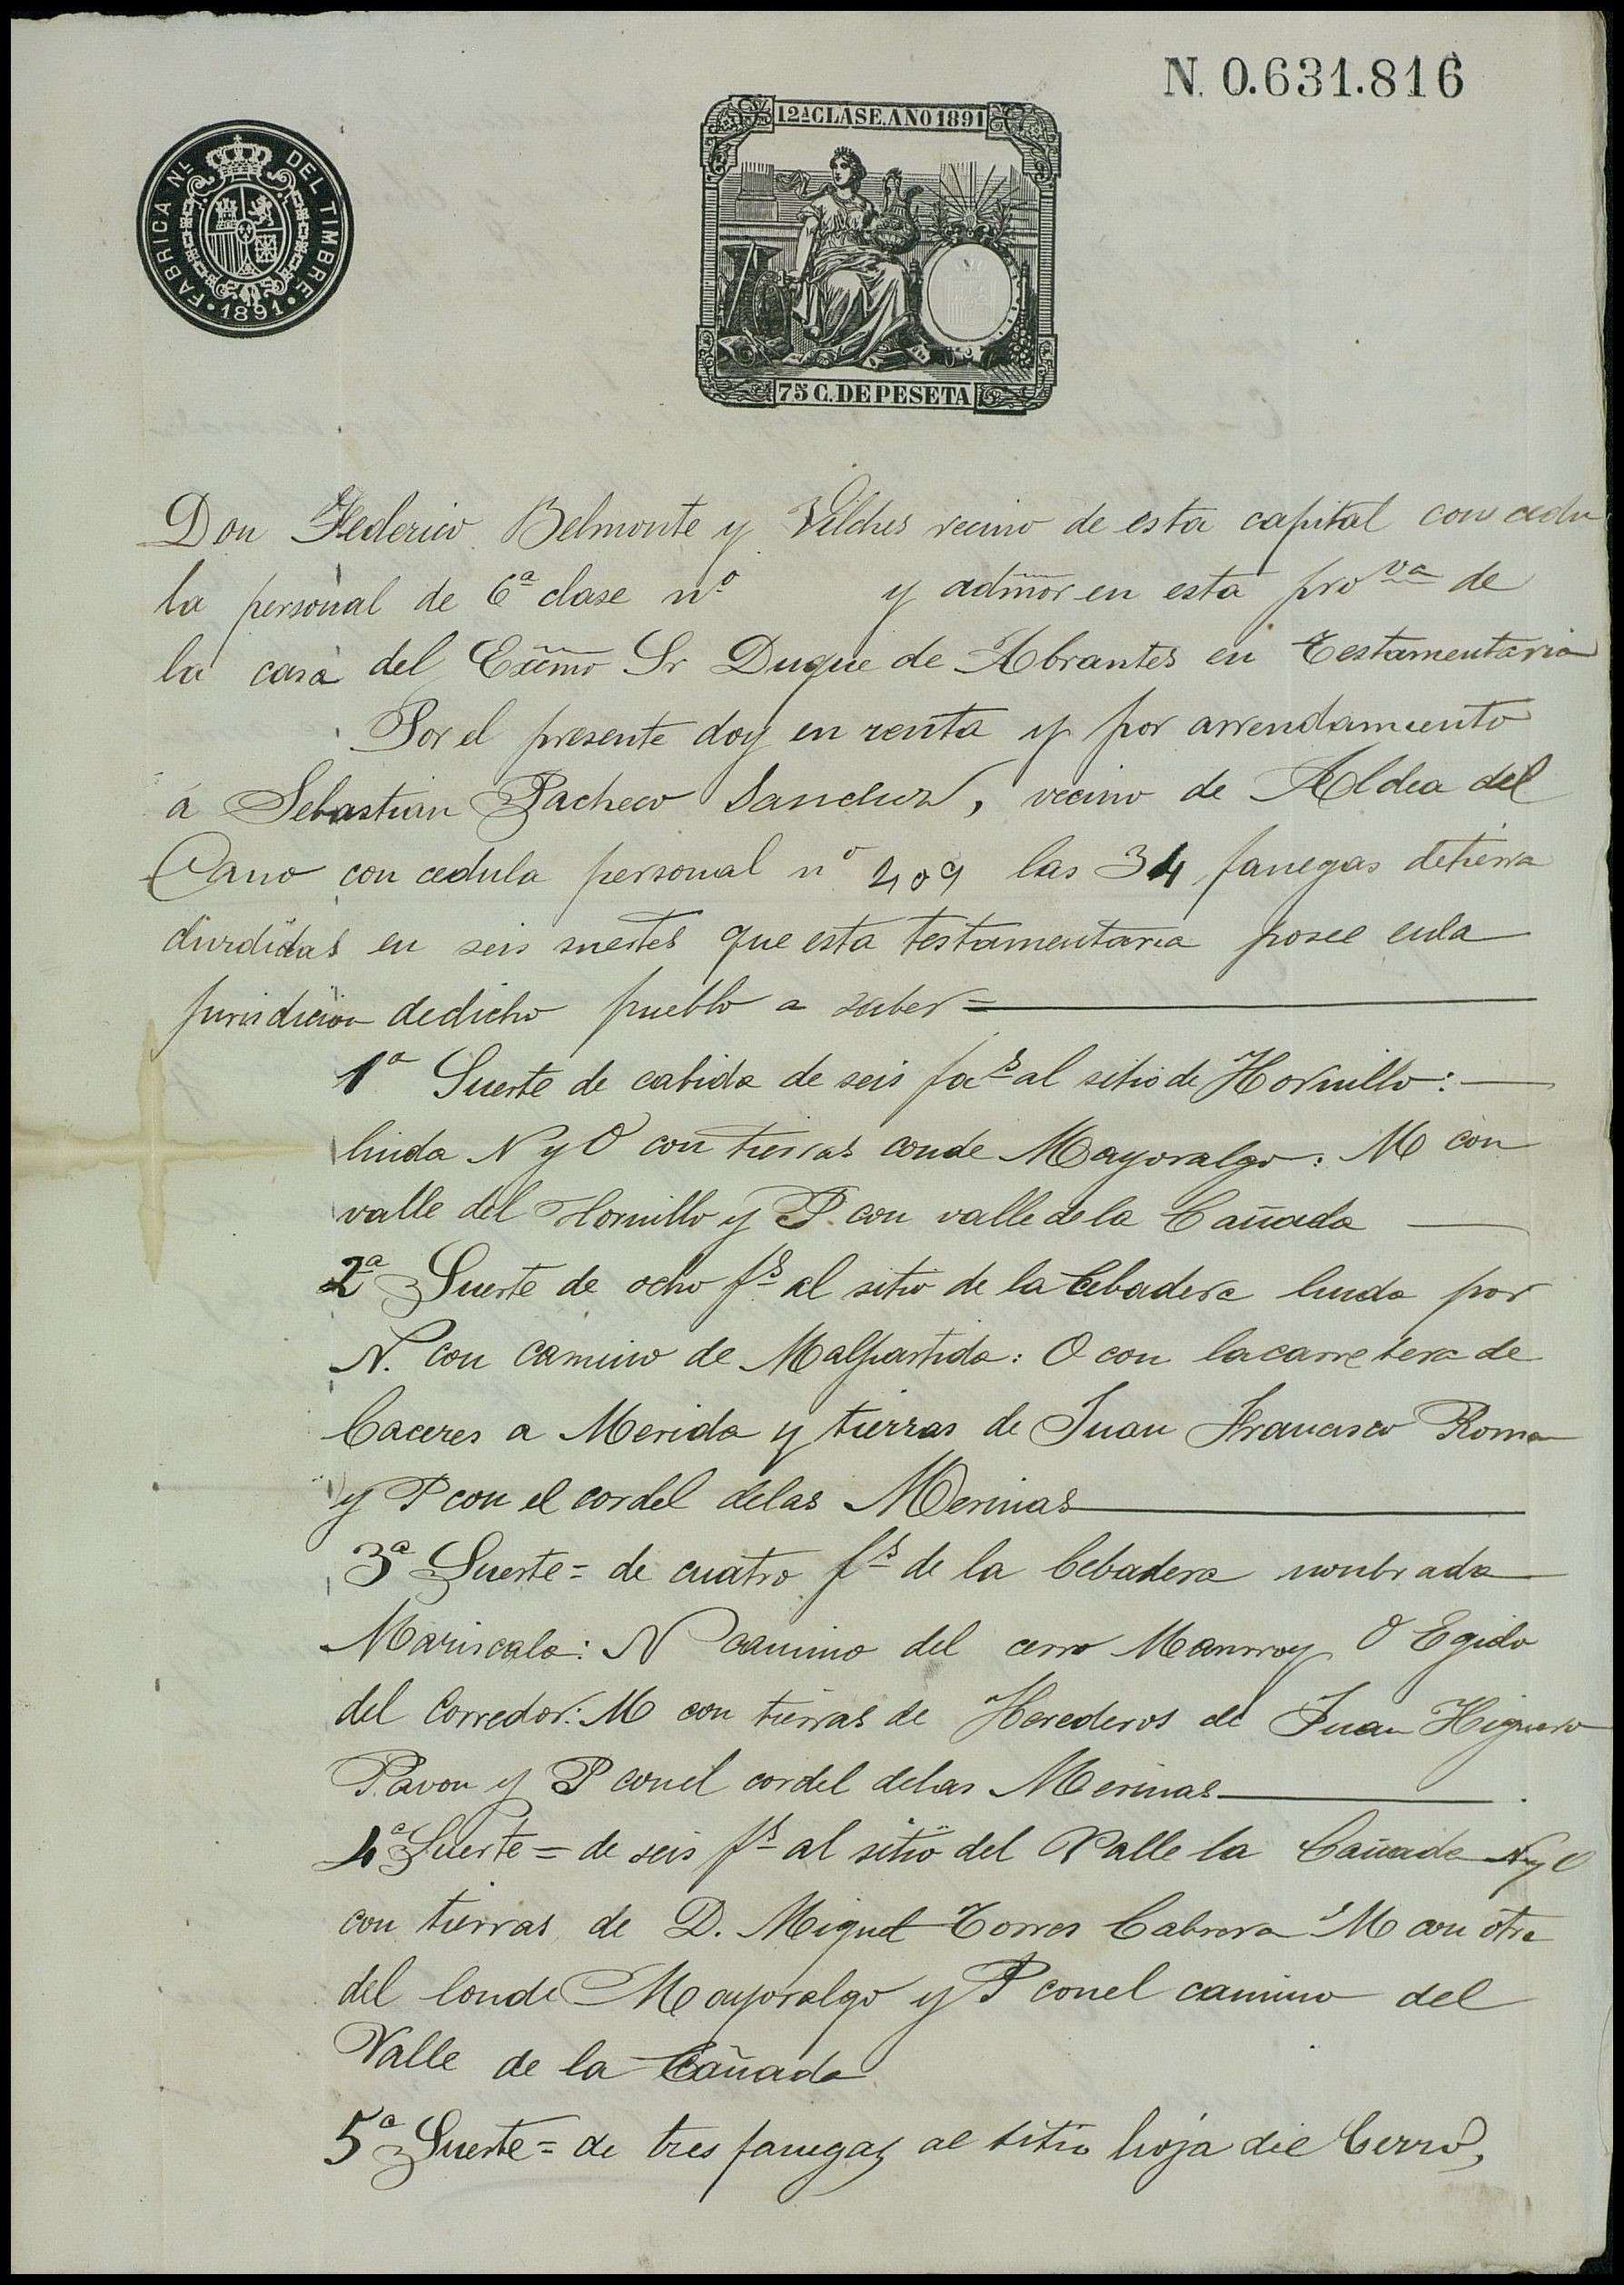 N. 0.631.816
12ª CLASE. AÑO 1891
FABRICA Nᴸ DEL TIMBRE
1891
75 C. DE PESETA
Don Federico Belmonte y Vilches vecino de esta capital con cedu
la personal de 6ª clase nº y admor en esta provª de
la casa del Excmo Sr Duque de Abrantes en Testamentaria
Por el presente doy en renta y por arrendamiento
a Sebastian Pacheco Sanchez, vecino de Aldea del
Cano con cedula personal nº 209 las 34 fanegas de tierra
divididas en seis suertes que esta testamentaria posee en la
jurisdicion de dicho pueblo a saber =
1ª Suerte de cabida de seis faˢ al sitio de Hornillo:
linda N y O con tierras conde Mayoralgo: M con
valle del Hornillo y P. con valle de la Cañada
2ª Suerte de ocho fˢ al sitio de la Cebadera linda por
N. con camino de Malpartida: O con la carretera de
Caceres a Merida y tierras de Juan Francisco Roma
y P con el cordel de las Merinas
3ª Suerte = de cuatro fˢ de la Cebadera nonbrada
Mariscala: N camino del cerro Manrroy O Egido
del Corredor: M con tierras de Herederos de Juan Higuero
Pavon y P con el cordel de las Merinas
4ª Suerte = de seis fˢ al sitio del Valle la Cañada N y O
con tierras de D. Miguel Torres Cabrera M con otra
del Conde Mayoralgo y P con el camino del
Valle de la Cañada
5ª Suerte = de tres fanegas al sitio hoja del Cerro,